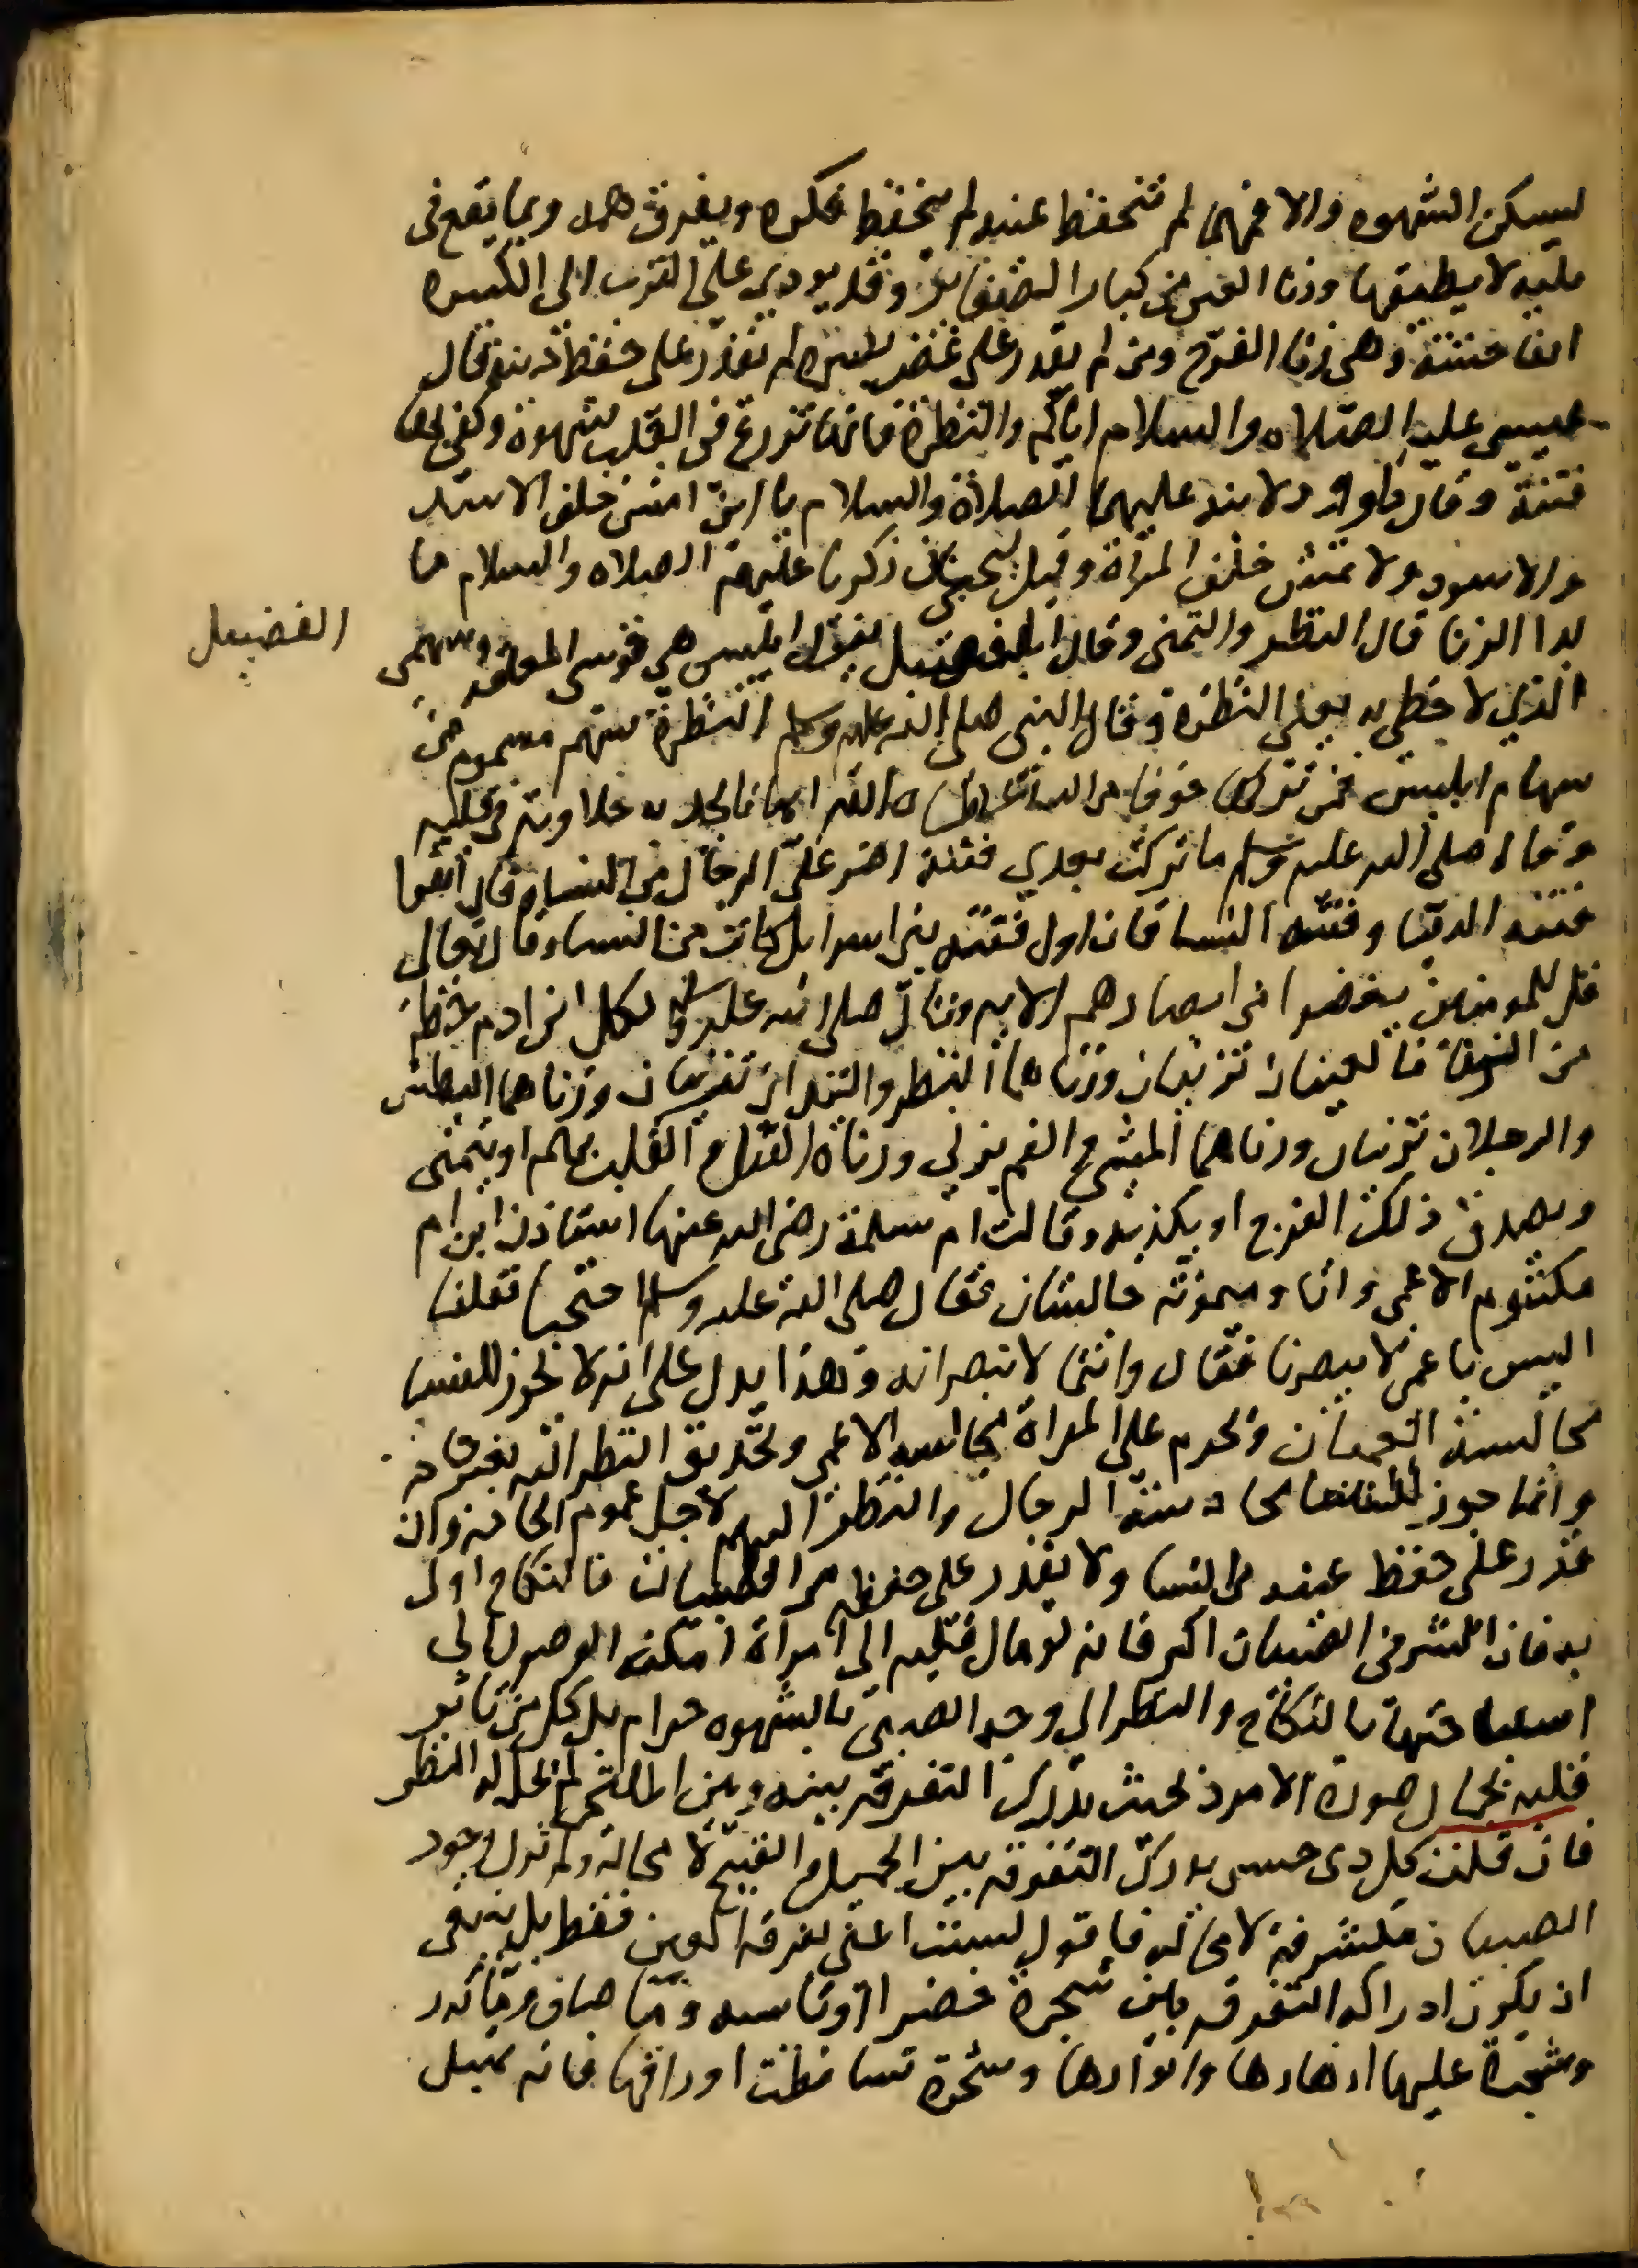 ليسكن الشهوه والا فمهما لم تحفظ عينه لم يحفظ فكره ويفرق همه وربما يقع في
بليه لا يطيقها وزنا العين من كبار الصغاير وقد يودي على القرب الى الكبيره
الفاحشة وهي زنا الفرج ومن لم يقدر على غض بصره لم يقدر على حفظ دينه قال
عيسى عليه الصلاه والسلام اياكم والنظرة فانها تزرع في القلب شهوة وكفى بها
فتنة وقال داوود لابنه عليهما الصلاة والسلام يا ابني امش خلف الاسد
والاسود ولا تمش خلف المرأة وقيل ليحيى بن زكريا عليهم الصلاه والسلام ما
بدا الزنا قال النظر والتمني وقال الفضيل يقول ابليس هي قوسي وسهمي
الفضيل
الذي لا اخطي به يعني النظرة وقال النبي صلى الله عليه وسلم النظرة سهم مسموم من
سهام ابليس فمن تركها خوفا من الله تعالى اتاه الله ايمانا يجد به حلاوته في قلبه
وقال صلى الله عليه وسلم ما تركت بعدي فتنة اضر على الرجال من النساء وقال اتقوا
فتنة الدنيا وفتنة النسا فان اول فتنة بني اسرايل كانت من النساء وقال تعالى
قل للمومنين يغضوا من ابصارهم الايه وقال صلى الله عليه وسلم لكل ابن ادم حظه
من الزنا فالعينان تزنيان وزناهما النظر واليدان تزنيان وزناهما البطش
والرجلان تزنيان وزناهما المشي والفم يزني وزناه القبلة والقلب يهم او يتمنى
ويصدق ذلك الفرج او يكذبه وقالت ام سلمة رضي الله عنها استاذن ابن ام
مكتوم الاعمى وانا وميمونة جالستان فقال صلى الله عليه وسلم احتجبا فقلنا
اليس باعمى لا يبصرنا فقال وانتما لا تبصرانه وهذا يدل على انه لا يجوز للنسا
مجالسة العميان ويحرم على المراة مجالسه الاعمى وتحديق النظر اليه لغير حاجة
وانما جوز للنسا محادثة الرجال والنظر اليهم لاجل عموم الحاجة وان
قدر على حفظ عينه من النسا ولا يقدر على حفظها من الصبيان فالنكاح اولى
به فان الشر في الصبيان اكبر فانه لو مال قلبه الى امرأة امكنه الوصول الى
استباحتها بالنكاح والنظر الى وجه الصبي بالشهوه حرام بل كل من تاثر
قلبه بجمال صورة الامرد بحيث يدرك التفرقة بينه وبين الملتحي لم يحل له النظر
فان قلت كل ذي حس يدرك التفرقه بين الجميل والقبيح لا محالة ولم تزل وجوه
الصبيان مكشوفة لا محاله فاقول لست اعني تفرقة العين فقط بل ينبغي
ان يكون ادراكه التفرقه بين شجرة خضرا ويابسه وما صاف وما كدر
وشجرة عليها ازهارها وانوارها وشجرة تساقطت اوراقها فانه يميل